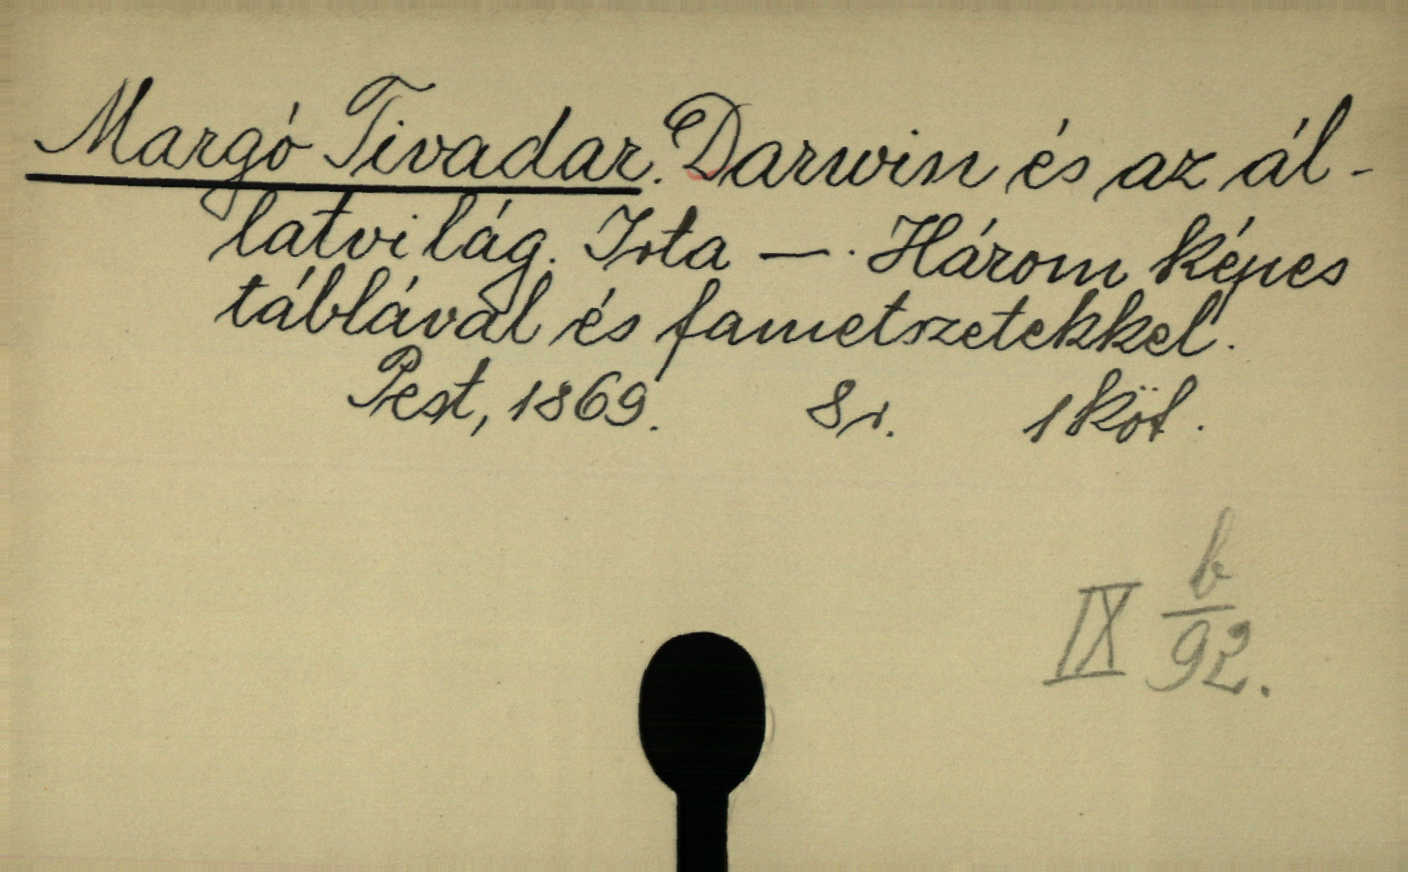 Margó Tivadar. Darwin és az ál-
latvilág. Irta — . Három képes
táblával és fametszetekkel.
Pest, 1869. 8r. 1 köt.
IX b/92.